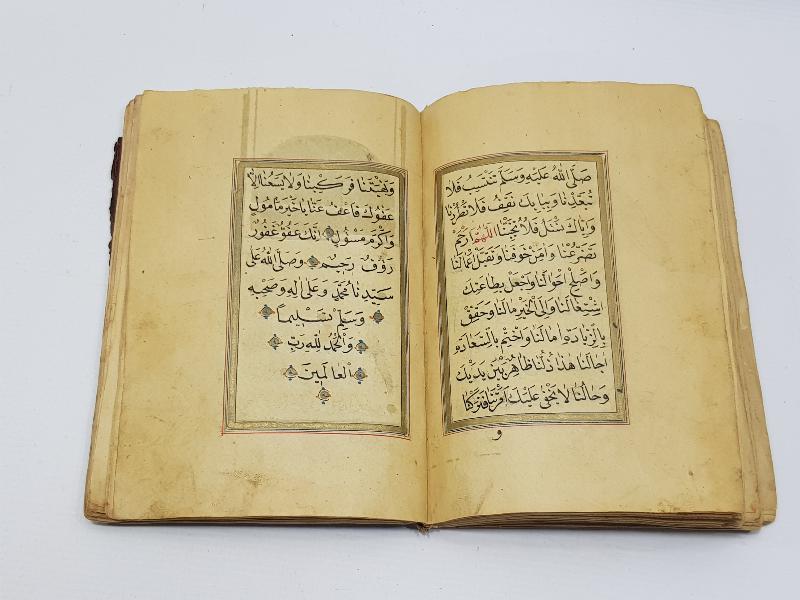 صَلَّى اللهُ عَلَيْهِ وَسَلَّمَ نَنْتَسِبُ فَلَا
تُبْعِدْنَا وَبِبَابِكَ نَقِفُ فَلَا تَطْرُدْنَا
وَإِيَّاكَ نَسْئَلُ فَلَا تُخَيِّبْنَا اَللّٰهُمَّ ارْحَمْ
تَضَرُّعَنَا وَاٰمِنْ خَوْفَنَا وَتَقَبَّلْ اَعْمَالَنَا
وَاَصْلِحْ اَحْوَالَنَا وَاجْعَلْ بِطَاعَتِكَ
اِشْتِغَالَنَا وَاِلَى الْخَيْرِ مَاٰلَنَا وَحَقِّقْ
بِالزِّيَادَةِ اٰمَالَنَا وَاخْتِمْ بِالسَّعَادَةِ
اٰجَالَنَا هٰذَا ذُلُّنَا ظَاهِرٌ بَيْنَ يَدَيْكَ
وَحَالُنَا لَا يَخْفٰى عَلَيْكَ اَمَرْتَنَا فَتَرَكْنَا
و
وَنَهَيْتَنَا فَرَكِبْنَا وَلَا يَسَعُنَا اِلَّا
عَفْوُكَ فَاعْفُ عَنَّا يَا خَيْرَ مَأْمُولٍ
وَاَكْرَمَ مَسْؤُلٍ اِنَّكَ عَفُوٌّ غَفُورٌ
رَؤُفٌ رَحِيمٌ وَصَلَّى اللهُ عَلٰى
سَيِّدِنَا مُحَمَّدٍ وَعَلٰى اٰلِهِ وَصَحْبِهِ
وَسَلَّمَ تَسْلِيمًا
وَالْحَمْدُ لِلّٰهِ رَبِّ
الْعَالَمِينَ